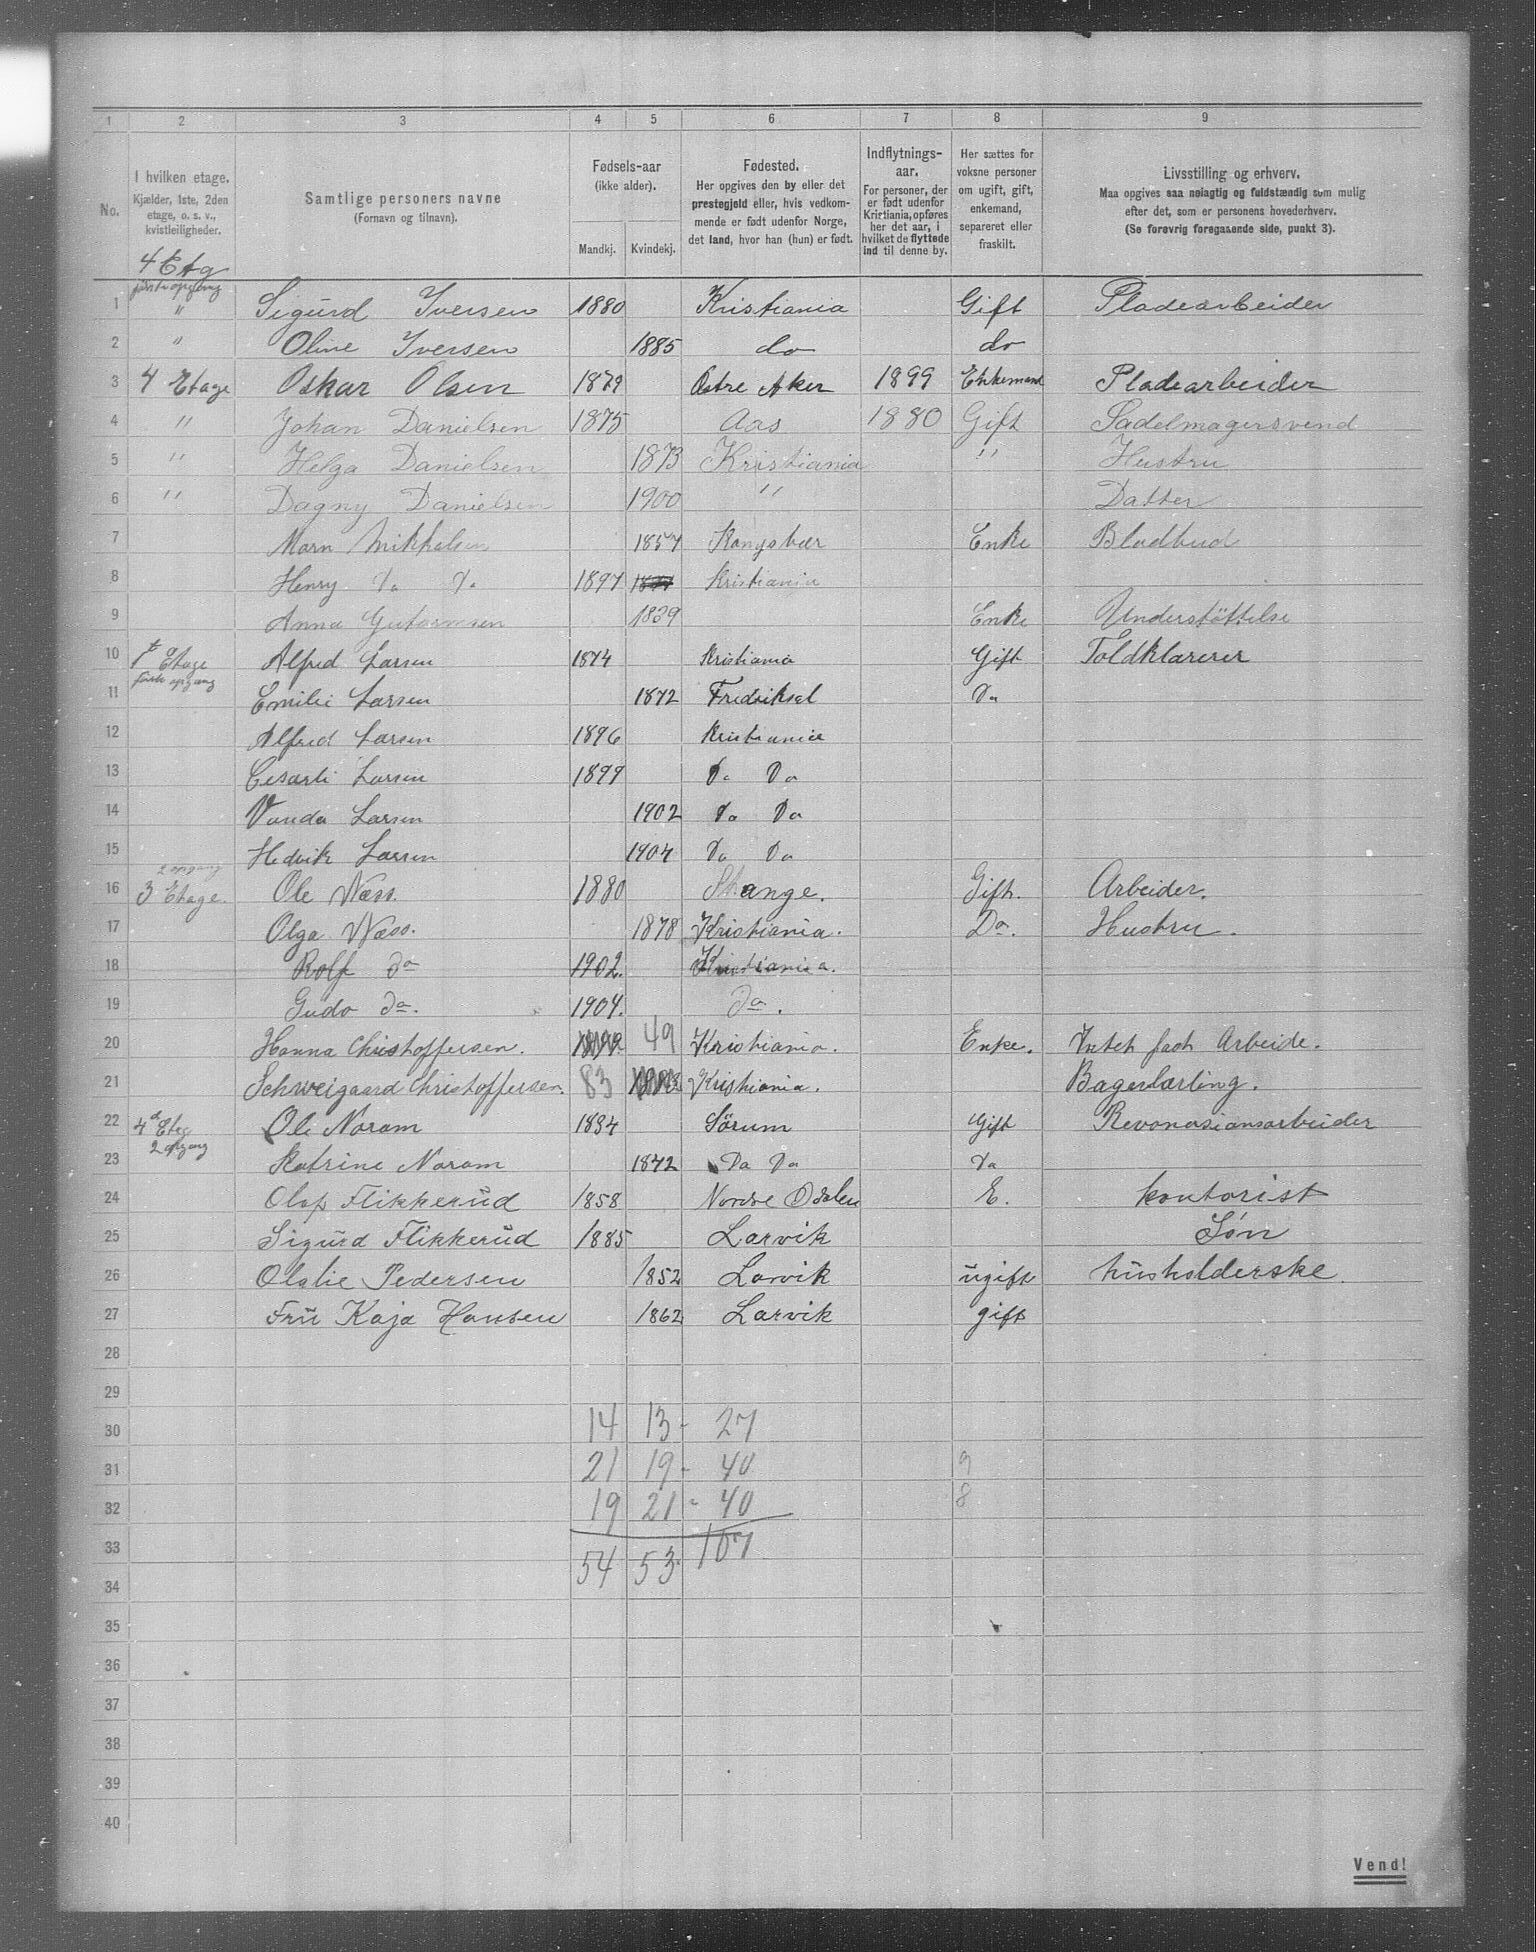 1 2 3 4 5 6 7 8 9
No.
I hvilken etage.
Kjælder, 1ste, 2den
etage, o. s. v.,
kvistleiligheder.
Samtlige personers navne
(Fornavn og tilnavn).
Fødsels-aar
(ikke alder).
Mandkj. Kvindekj.
Fødested.
Her opgives den by eller det
prestegjeld eller, hvis vedkom-
mende er født udenfor Norge,
det land, hvor han (hun) er født.
Indflytnings-
aar.
For personer, der
er født udenfor
Kristiania, opføres
her det aar, i
hvilket de flyttede
ind til denne by.
Her sættes for
voksne personer
om ugift, gift,
enkemand,
separeret eller
fraskilt.
Livsstilling og erhverv.
Maa opgives saa nøiagtig og fuldstændig som mulig
efter det, som er personens hovederhverv.
(Se forøvrig foregaaende side, punkt 3).
4 Etg
første opgang
1 " Sigurd Iversen 1880 Kristiania Gift Pladearbeider
2 " Oline Iversen 1885 do do
3 4 Etage Oskar Olsen 1879 Østre Aker 1899 Enkemand Pladearbeider
4 " Johan Danielsen 1875 Aas 1880 Gift Sadelmagersvend
5 " Helga Danielsen 1873 Kristiania " Hustru
6 " Dagny Danielsen 1900 " Datter
7 Marn Mikkelsen 1857 Kongsbær Enke Bladbud
8 Henry Do Do 1897 Kristiania
9 Anna Gutormsen 1839 Enke Understöttelse
10 1st Etage Alfred Larsen 1874 Kristiania Gift Toldklarerer
første opgang
11 Emilie Larsen 1872 Fredriksal Do
12 Alfred Larsen 1896 Kristiania
13 Cesarli Larsen 1899 Do Do
14 Vanda Larsen 1902 Do Do
15 Hedvik Larsen 1904 Do Do
2 opgang
16 3 Etage. Ole Næss. 1880 Stange. Gift. Arbeider.
17 Olga Næss. 1878 Kristiania. Do. Hustru.
18 Rolf do 1902. Kristiania.
19 Gudo do. 1904. do.
20 Hanna Christoffersen. 49 Kristiania. Enke. Intet fast Arbeide.
21 Schweigaard Christoffersen. 83 Kristiania. Bagerlærling.
22 4d Etag Ole Noram 1834 Sörum Gift Revonasionsarbeider
2 opgang
23 Katrine Noram 1842 Do Do Do
24 Olaf Flikkerud 1858 Nordre Odalen E. kontorist
25 Sigurd Flikkerud 1885 Larvik Søn
26 Olalie Pedersen 1852 Larvik ugift husholderske
27 Fru Kaja Hansen 1862 Larvik gift
28
29
30 14 13 - 27
31 21 19 - 40 9
32 19 21 - 40 8
33 54 53 107
34
35
36
37
38
39
40
Vend!